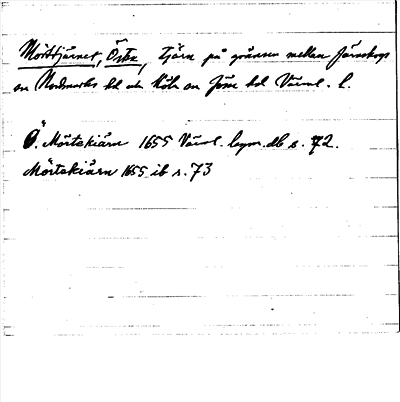 Mörttjärnet, Östra, tjärn på gränsen mellan Järnskogs
sn Nordmarks hd och Köla sn Jösse hd Värml. l.
Ö. Mörtekiärn 1655 Värml. lsym. db s. 72.
Mörtekiärn 1655 ib s. 73